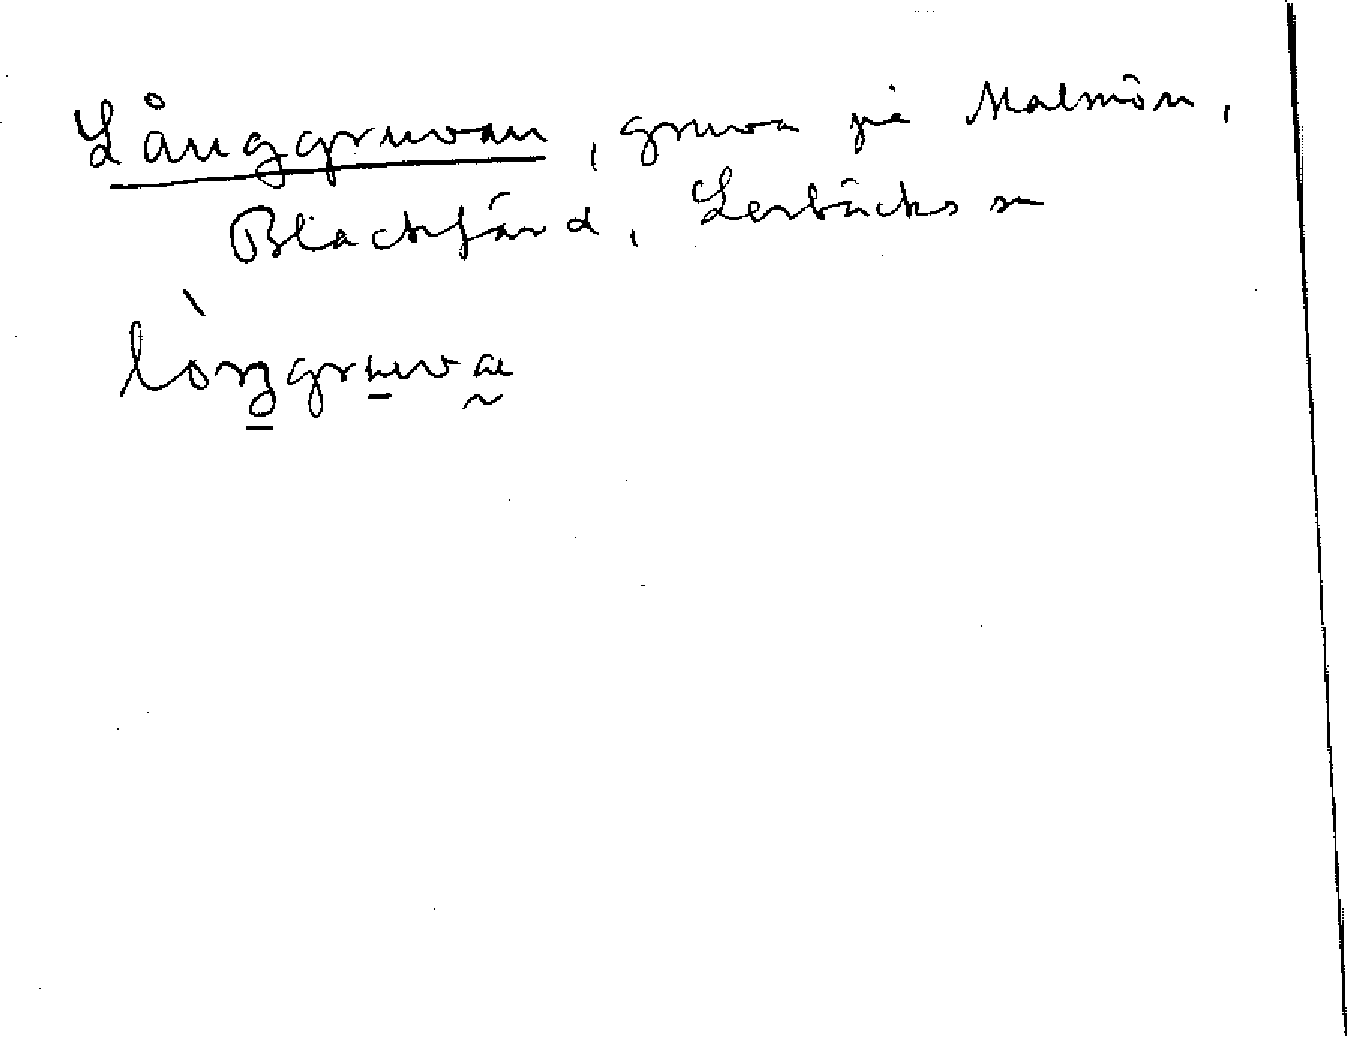 Långgruvan, gruva på Malmön,
Blackfård, Lerbäcks sn
lòŋgruvæ